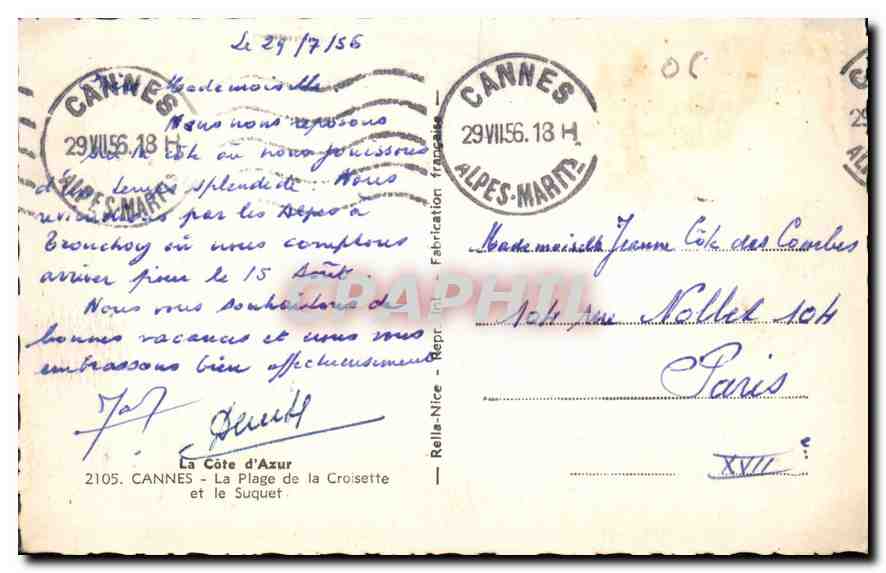 Le 29/7/56
Mademoiselle
Nous nous reposons
sur la côte où nous jouissons
d'un temps splendide. Nous
reviendrons par les Alpes à
Tronchoy où nous comptons
arriver pour le 15 Août.
Nous vous souhaitons de
bonnes vacances et nous vous
embrassons bien affectueusement
La Côte d'Azur
2105. CANNES - La Plage de la Croisette
et le Suquet
Rella-Nice - Repr. Int. - Fabrication française
CANNES
29 VII 56. 18 H
ALPES-MARITMES
CANNES
29 VII 56. 18 H
ALPES-MARIT
29
AL
06
Mademoiselle Jeanne Côte des Combes
104 rue Nollet 104
Paris
XVII e
CPAPHIL